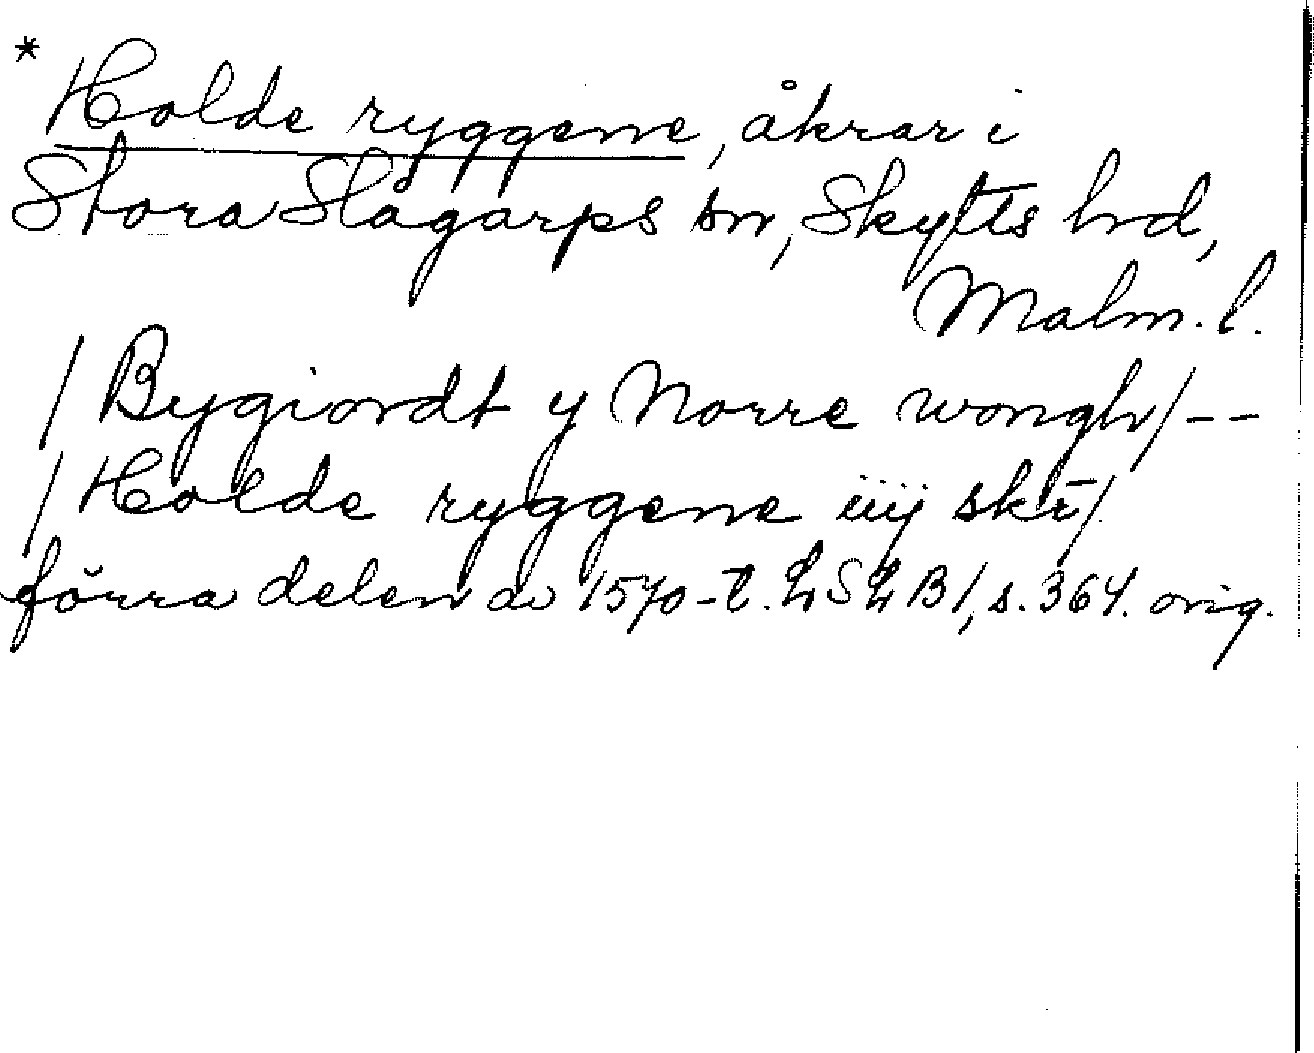 * Holde ryggene, åkrar i
Stora Slågarps sn, Skytts hd,
Malm. l.
/ Bygiordt y Norre wongh/--
/ Holde ryggene iiij skr/.
förra delen av 1570-t. LSLB1, s. 364. orig.